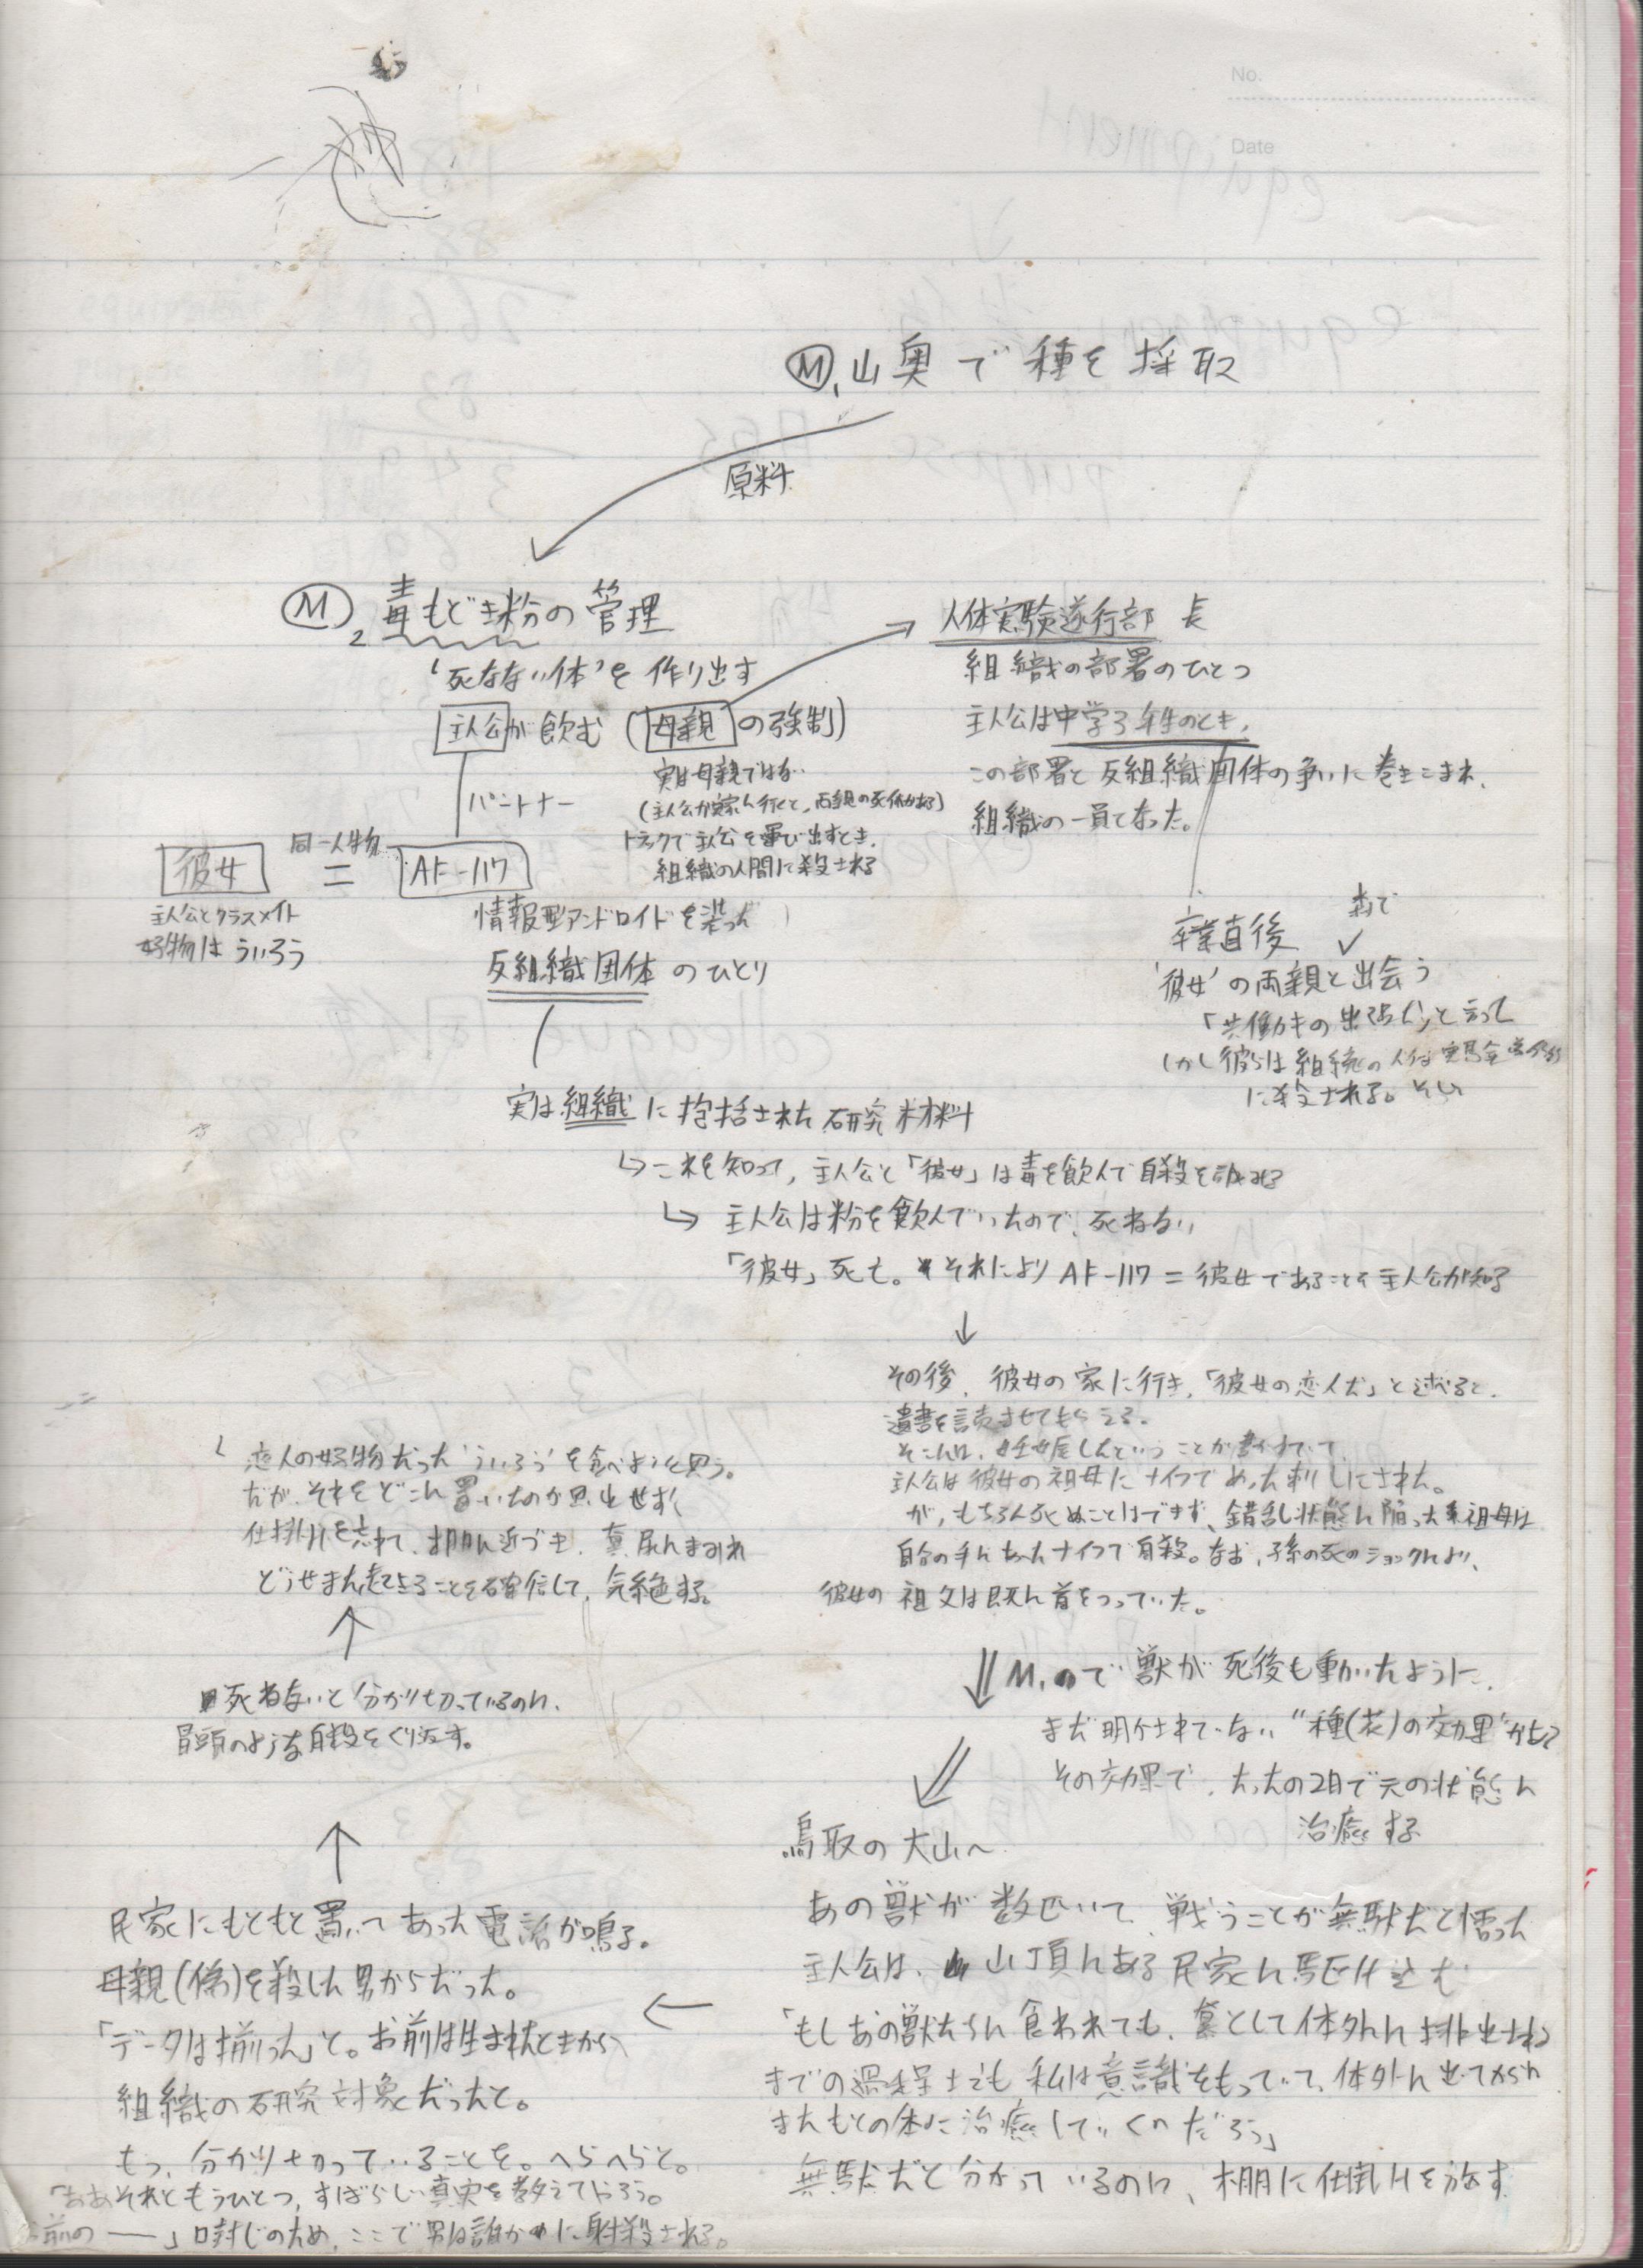 No.
Date
M1 山奥で種を採取
原料
M2 毒もどき粉の管理
'死なない体'を作り出す
主人公が飲む(母親の強制)
実は母親ではない
(主人公が実家へ行くと、両親の死体がある)
トラックで主人公を運び出すとき、
組織の人間に殺される
人体実験遂行部 長
組織の部署のひとつ
主人公は中学3年生のとき、
この部署と反組織団体の争いに巻きこまれ、
組織の一員となった。
パートナー
彼女
同一人物
=
AF-117
主人公とクラスメイト
好物はういろう
情報型アンドロイドを
反組織団体のひとり
卒業直後
森で
'彼女'の両親と出会う
「共働きの出張だ」と言って
しかし彼らは組織の人体実験
に殺される。
実は組織に抱括された研究材料
これを知って、主人公と「彼女」は毒を飲んで自殺を試みる
主人公は粉を飲んでいたので、死ねない
「彼女」死亡。それによりAF-117=彼女であることを主人公が知る
その後、彼女の家に行き、「彼女の恋人だ」と述べると、
遺書を読ませてもらえる。
そこには、妊娠したということが書かれていて
主人公は彼女の祖母にナイフでめった刺しにされた。
が、もちろん死ぬことはできず、錯乱状態に陥った祖母は
自分の手にあったナイフで自殺。なお、孫の死のショックにより、
彼女の祖父は既に首をつっていた。
M1ので獣が死後も動いたように、
まだ明かされていない"種(花)の効果"があって
その効果で、たったの2日で元の状態に
治癒する
鳥取の大山へ
あの獣が数匹いて、戦うことが無駄だと悟った
主人公は、山頂にある民家に駆け込む
「もしあの獣たちに食われても、糞として体外に排出される
までの過程さえも私は意識をもっていて、体外に出てからに
またもとの体に治癒していくのだろう」
無駄だと分かっているのに、棚に仕掛けを施す
民家にもともと置いてあった電話が鳴る。
母親(偽)を殺した男からだった。
「データは揃った」と。お前は生まれたときから
組織の研究対象だったと。
もう、分かりきっていることを。へらへらと。
「ああそれともうひとつ、すばらしい真実を教えてやろう。
お前の――」口封じのため、ここで男は誰かに射殺される。
死ねないと分かり切っているのに、
冒頭のような自殺をくり返す。
恋人の好物だった'ういろう'を食べようと思う。
だが、それをどこに置いたのか思い出せず、
仕掛けを忘れて、棚に近づき、糞尿にまみれ
どうせまた起きることを確信して、気絶する。